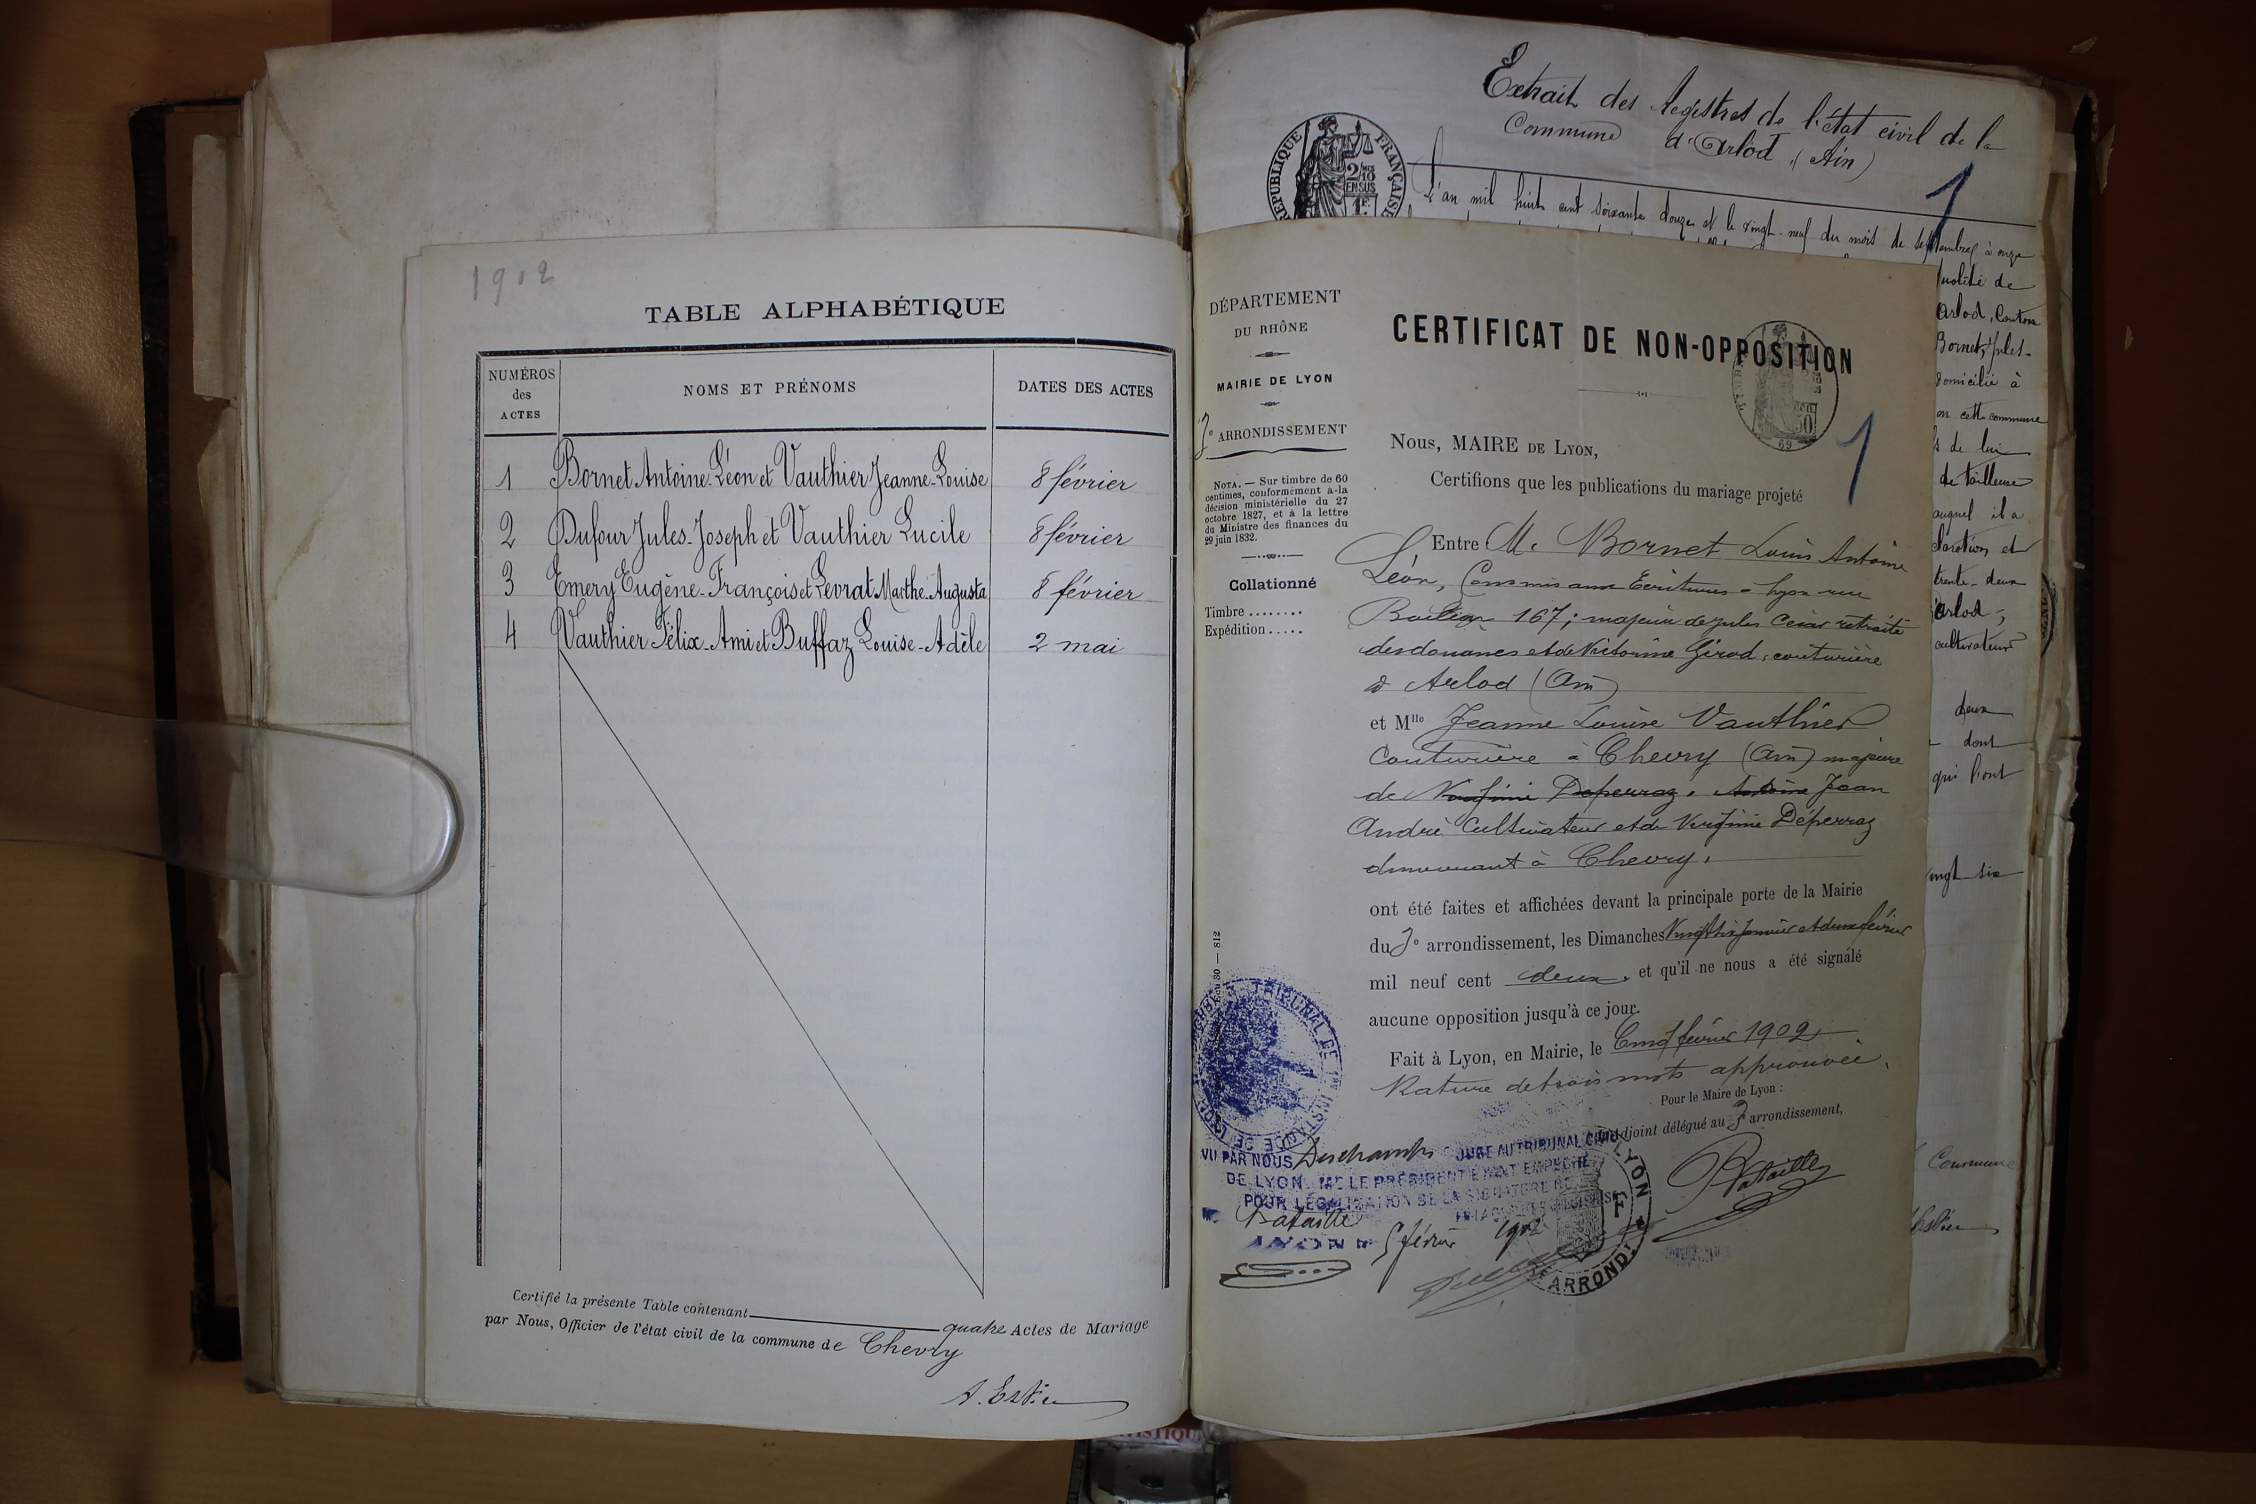 1902
TABLE ALPHABÉTIQUE
NUMÉROS
des
ACTES
NOMS ET PRÉNOMS
DATES DES ACTES
1 Bornet Antoine-Léon et Vauthier Jeanne-Louise 8 février
2 Dufour Jules-Joseph et Vauthier Lucile 8 février
3 Emery Eugène-François et Levrat Marthe-Augusta 8 février
4 Vauthier Félix-Ami et Buffaz Louise-Adèle 2 mai
Certifié la présente Table contenant quatre Actes de Mariage
par Nous, Officier de l'état civil de la commune de Chevry
Extrait des Registres de l'état civil de la
Commune d'Arlod (Ain)
1
RÉPUBLIQUE FRANÇAISE
2/10
EN SUS
1F.
L'an mil huit cent soixante douze et le vingt-neuf du mois de septembre à onze
Arlod, Canton
domicilié à
cette commune
de lui
de tailleuse
auquel il a
trente-deux
Arlod,
cultivateur
deux
dont
qui l'ont
vingt six
Commune
DÉPARTEMENT
DU RHÔNE
MAIRIE DE LYON
3e ARRONDISSEMENT
NOTA. — Sur timbre de 60
centimes, conformément à la
décision ministérielle du 27
octobre 1827, et à la lettre
du Ministre des finances du
29 juin 1832.
Collationné
Timbre ........
Expédition .....
CERTIFICAT DE NON-OPPOSITION
1
Nous, MAIRE DE LYON,
Certifions que les publications du mariage projeté
Entre M. Bornet Louis Antoine
Léon, Commis aux Ecritures à Lyon rue
167; majeur de Jules César retraité
des douanes et de Victorine Girod, couturière
à Arlod (Ain)
et Mlle Jeanne Louise Vauthier
Couturière à Chevry (Ain) majeure
de Jean
André Cultivateur et de Virginie Déperraz
demeurant à Chevry.
ont été faites et affichées devant la principale porte de la Mairie
du 3e arrondissement, les Dimanches Vingt six Janvier et deux février
mil neuf cent deux, et qu'il ne nous a été signalé
aucune opposition jusqu'à ce jour.
Fait à Lyon, en Mairie, le Cinq février 1902
Rature de trois mots approuvée.
Pour le Maire de Lyon :
adjoint délégué au 3e arrondissement,
TRIBUNAL DE 1re INSTANCE DE LYON
VU PAR NOUS Deschamps JUGE AU TRIBUNAL CIVIL
DE LYON, Mr LE PRÉSIDENT ÉTANT EMPÊCHÉ
POUR LÉGALISATION DE LA SIGNATURE DE
Bataille
LYON 5 février 1902
Bataille
LYON
ARRONDt